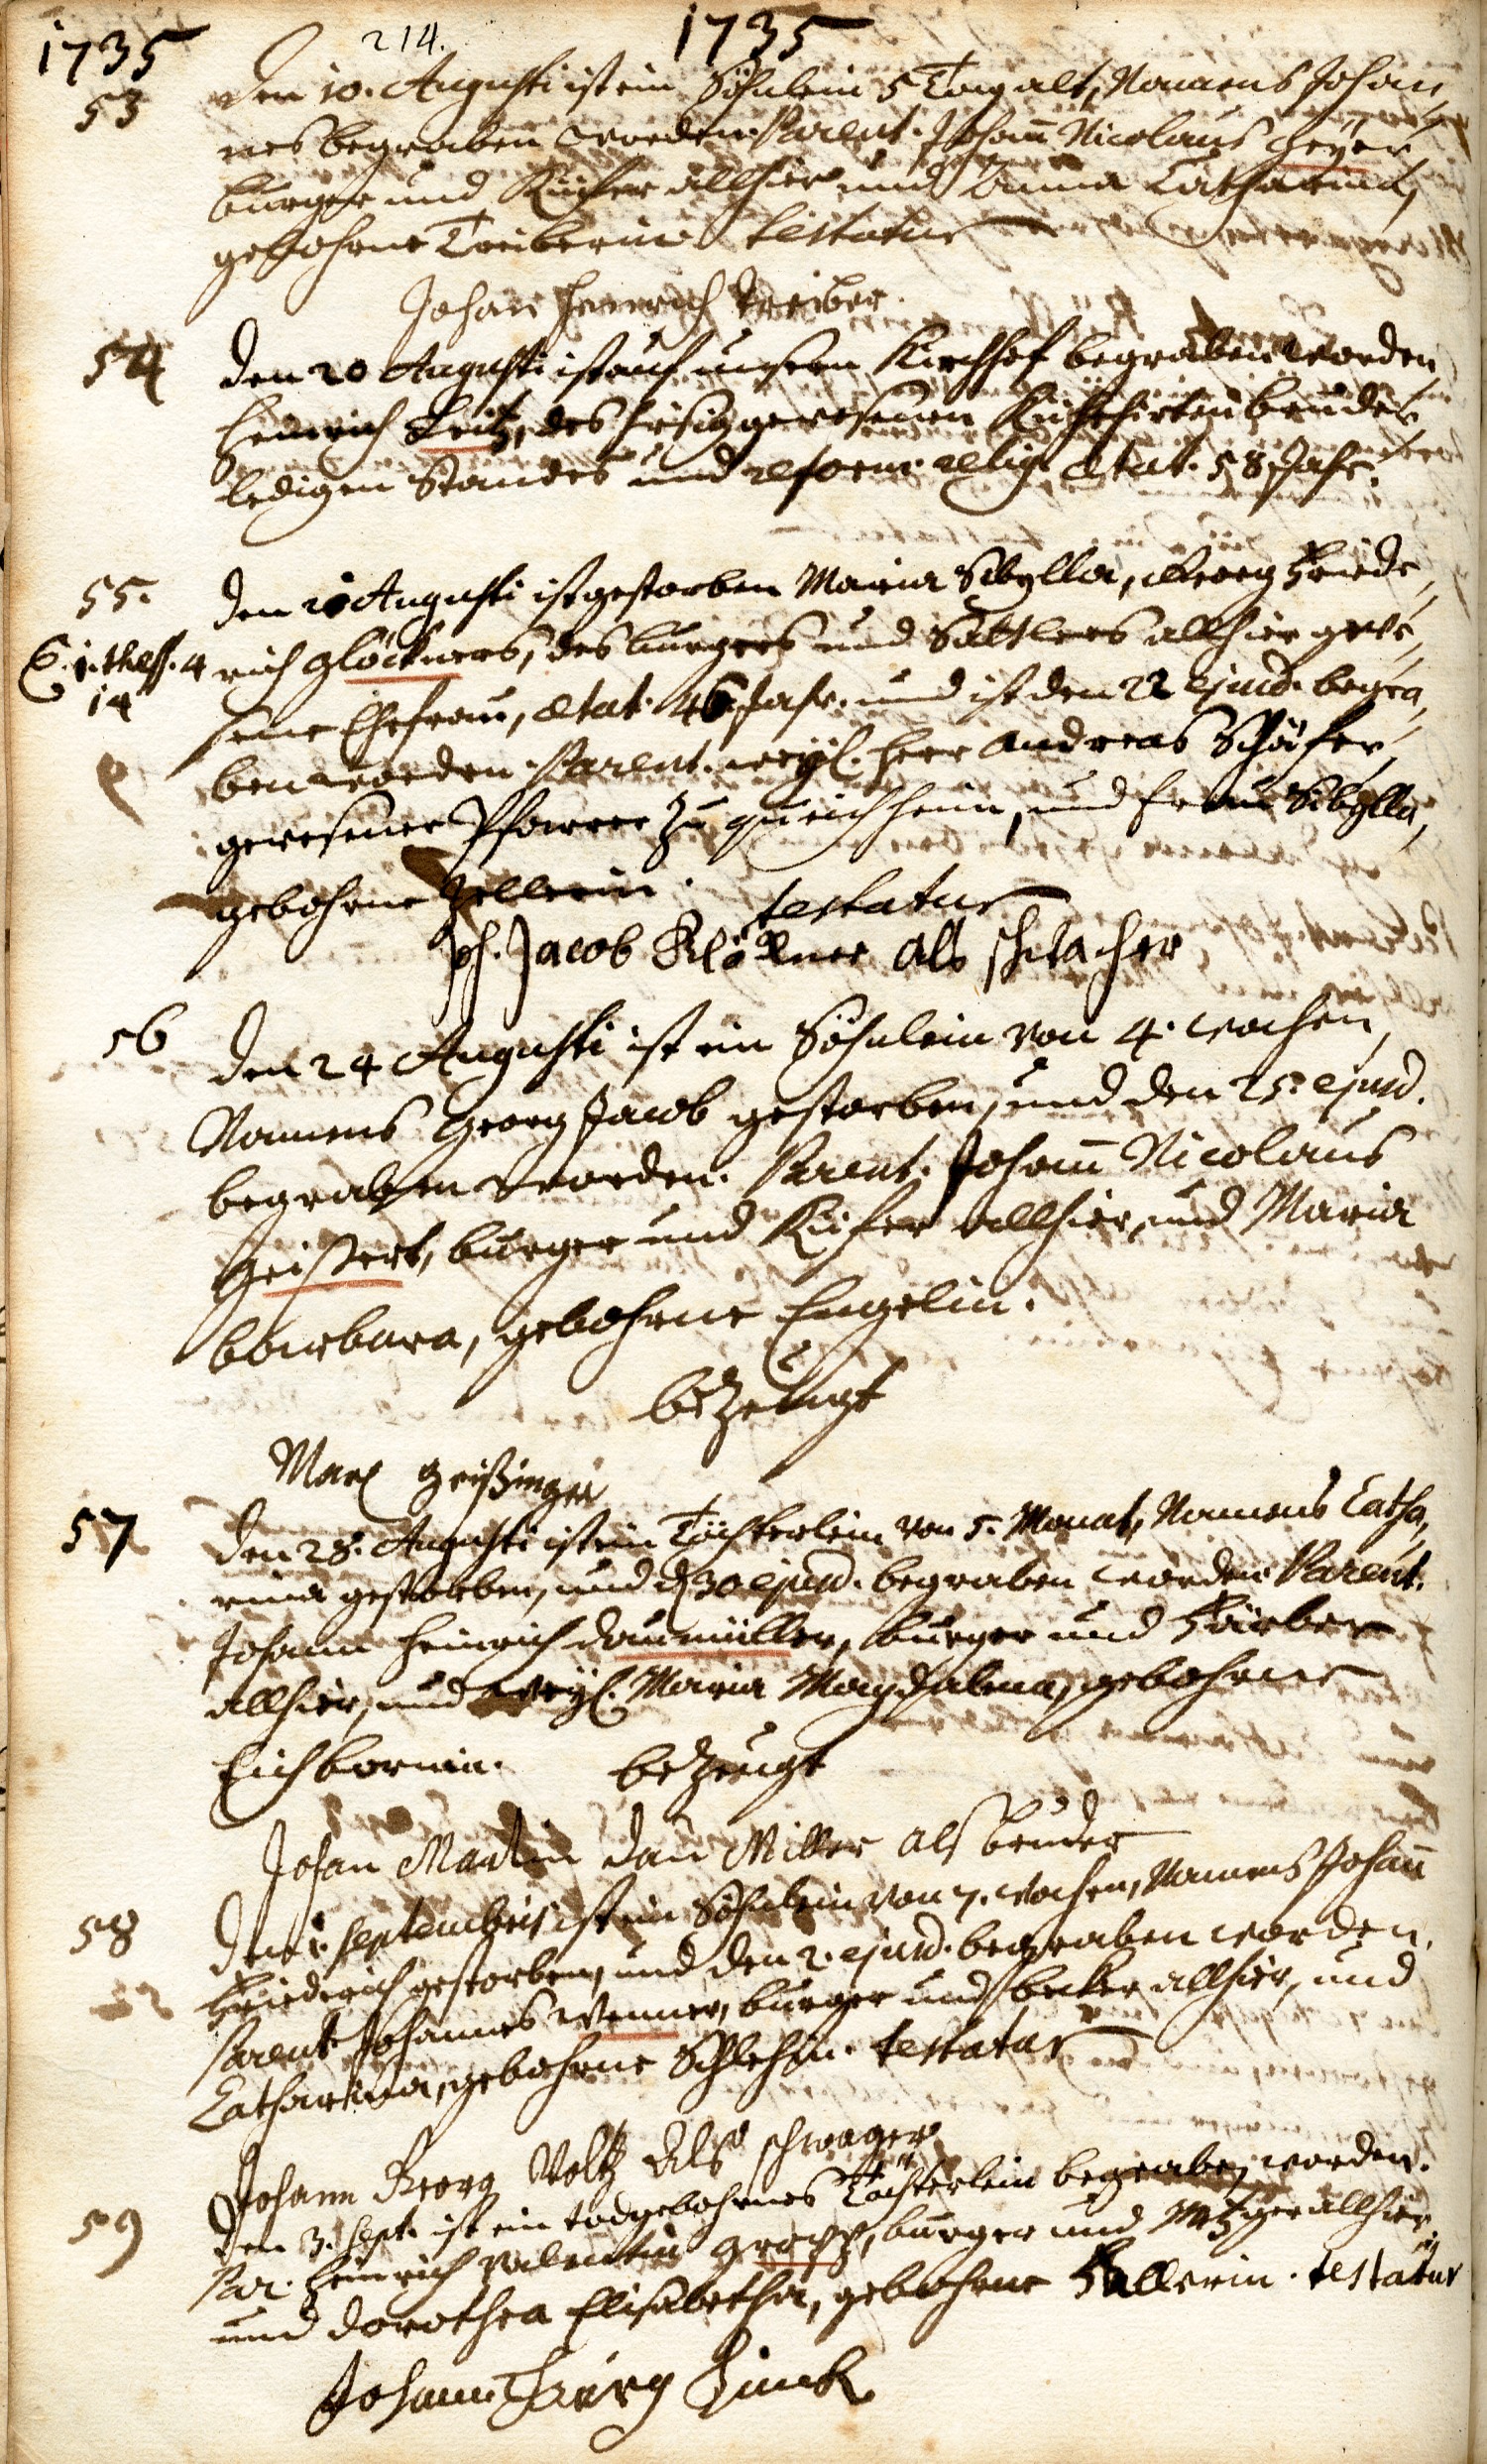 1735 214. 1735
53 Den 10. Augusti ist ein Söhnlein 5 Tag alt, Namens Johan,
nes begraben worden. Parent. Johan̄ Nicolaus Heyer,
burger und Küfer allhier und Anna Catharina,
gebohrne Treiberin. testatur
Johan Henrich Treiber.
54 Den 20 Augusti ist auf unsern Kirchhof begraben worden
Heinrich Leitz, des hiesig gewesenen Kühehirten bruder
ledigen Standes und reform. relig. ætat. 58 Jahr.
55. Den 20 Augusti ist gestorben Maria Sibylla, Georg Friede,
C. 1. Thess. 4 rich Glöckners, des burgers und Sattlers allhier gewe,
14 sene Ehefrau, ætat. 46 Jahr. und ist den 22 ejusd. begra,
ben worden. Parent. weyl. Herr Andreas Schäfer,
gewesener Pfarrer zu Queichheim, und Frau Sibylla,
gebohrne Zellerin. testatur
Ph. Jacob Klöckner als
56 Den 24 Augusti ist ein Söhnlein von 4. wochen,
Namens Georg Jacob gestorben, und den 25. ejusd.
begraben worden. Parent. Johan̄ Nicolaus
Geissert, burger und Küfer allhier, und Maria
barbara, gebohrne Engelin.
bezeugt
Marx Geißinger
57 Den 28. Augusti ist ein Töchterlein von 5. Monat, Namens Catha,
rina gestorben, und d 30 ejusd. begraben worden. Parent.
Johann Heinrich Daumüller, burger und Färber
allhier, und weyl. Maria Magdalena, gebohrne
Eichbornin. bezeugt
Johan Martin Dau Miller als bruder
58 Den 1. Septembris ist ein Söhnlein von 7. wochen, Namens Johan̄
Friederich gestorben, und den 2. ejusd. begraben worden.
Parent. Johannes Wenner, burger und becker allhier, und
Catharina, gebohrne Schlehin. testatur
Johann Georg Voltz als schwager
59 Den 3. Sept. ist ein todgebohrnes Töchterlein begraben worden.
Par. Heinrich Valentin Gropp, burger und Metzger allhier
und Dorothea Elisabetha, gebohrne Hallerin. testatur
Johann Georg Zinck